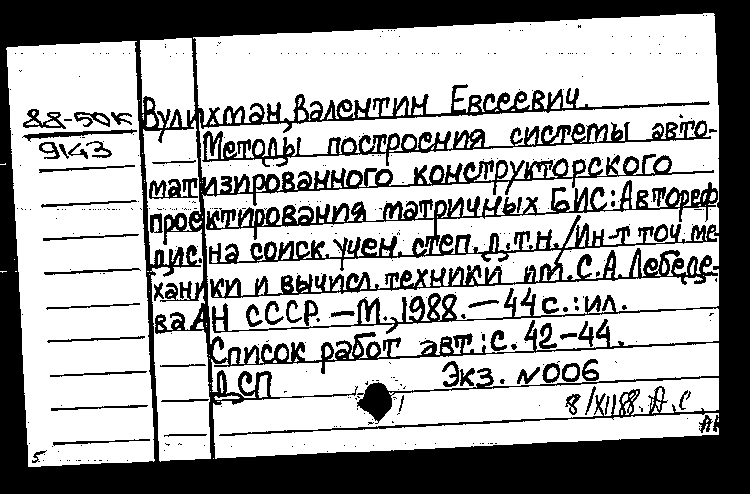 88-50К
9143
Вулихман, Валентин Евсеевич.
Методы построения системы авто-
матизированного конструкторского
проектирования матричных БИС: Автореф.
дис. на соиск. учен. степ. д.т.н. / Ин-т точ. ме-
ханики и вычисл. техники им. С.А. Лебеде-
ва АН СССР. — М., 1988. — 44 с. : ил.
Список работ авт.: с. 42-44.
ДСП Экз. №006
8/XII88. А.С.
5.